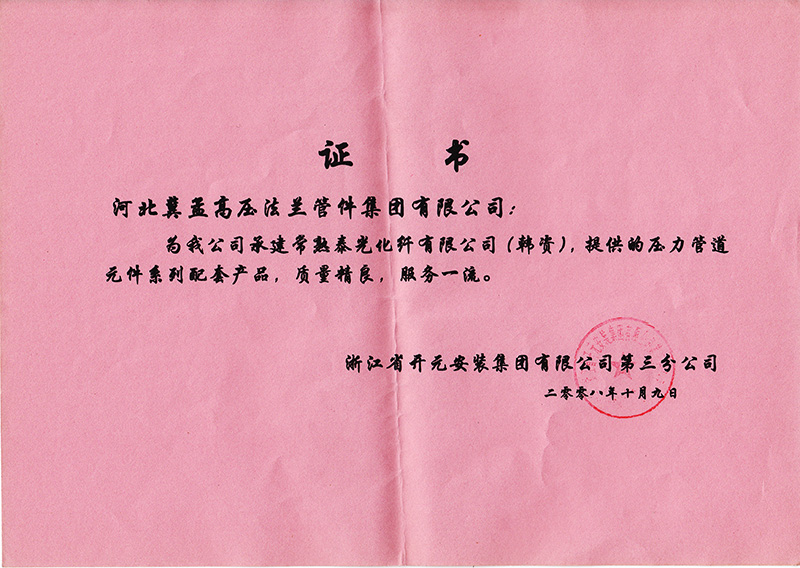 证 书
河北冀孟高压法兰管件集团有限公司:
为我公司承建常熟泰光化纤有限公司(韩资),提供的压力管道
元件系列配套产品,质量精良,服务一流。
浙江省开元安装集团有限公司第三分公司
二零零八年十月九日